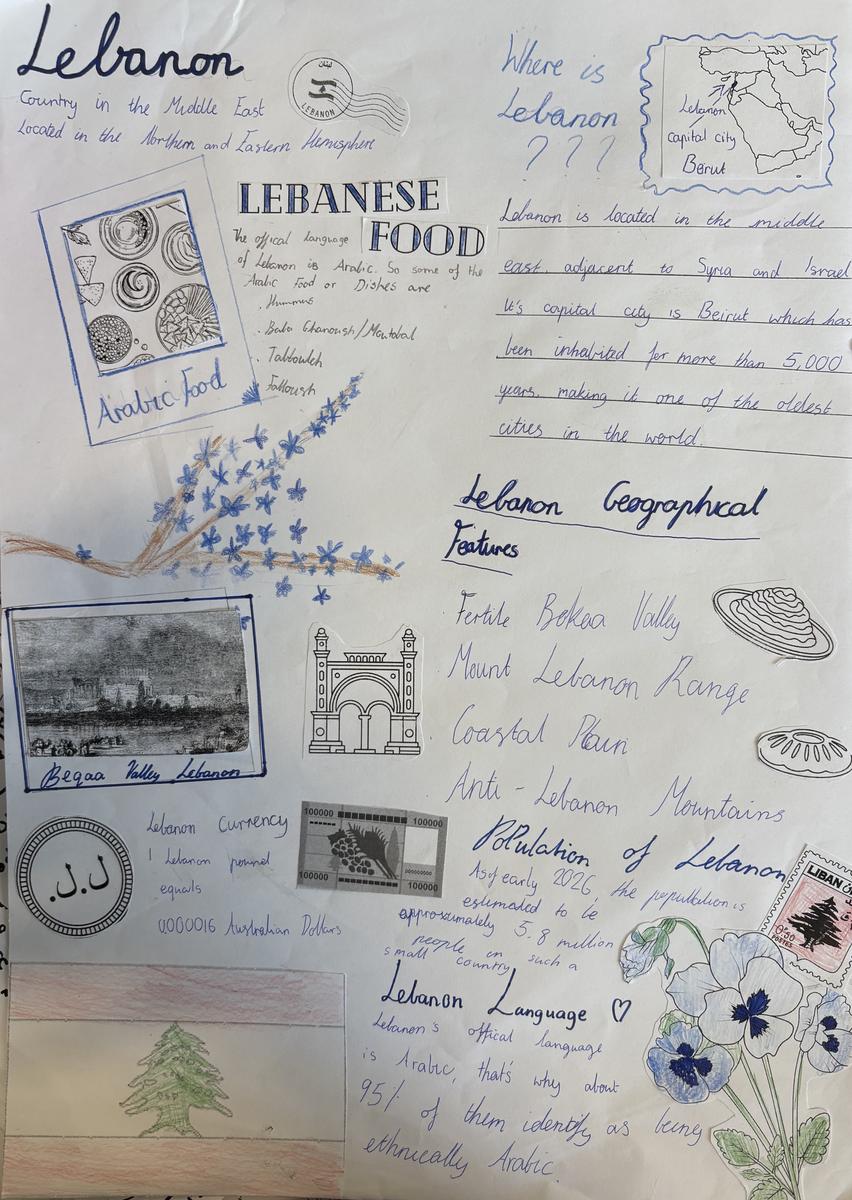 Lebanon
Country in the Middle East
Located in the Northern and Eastern Hemisphere
لبنان
LEBANON
Where is
Lebanon
? ? ?
Lebanon
capital city
Berut
LEBANESE
FOOD
The offical language
of Lebanon is Arabic. So some of the
Arabic Food or Dishes are
. Hummus
. Baba Ghanoush/Moutabal
. Tabbouleh
. Fattoush
Arabic Food
Lebanon is located in the middle
east, adjacent to Syria and Israel
It's capital city is Beirut which has
been inhabited for more than 5,000
years, making it one of the oldest
cities in the world.
Lebanon Geographical
Features
. Fertile Bekaa Valley
. Mount Lebanon Range
. Coastal Plain
. Anti-Lebanon Mountains
Beqaa Valley Lebanon
ل.ل.
Lebanon Currency
1 Lebanon pound
equals
0.000016 Australian Dollars
100000
100000
100000
100000
Population of Lebanon
As of early 2026, the popultation is
estemated to be
approxomately 5.8 million
people in such a
small country
LIBAN
0p50
POSTES
Lebanon Language ♡
Lebanon's offical language
is Arabic, that's why about
95% of them identify as being
ethnically Arabic.